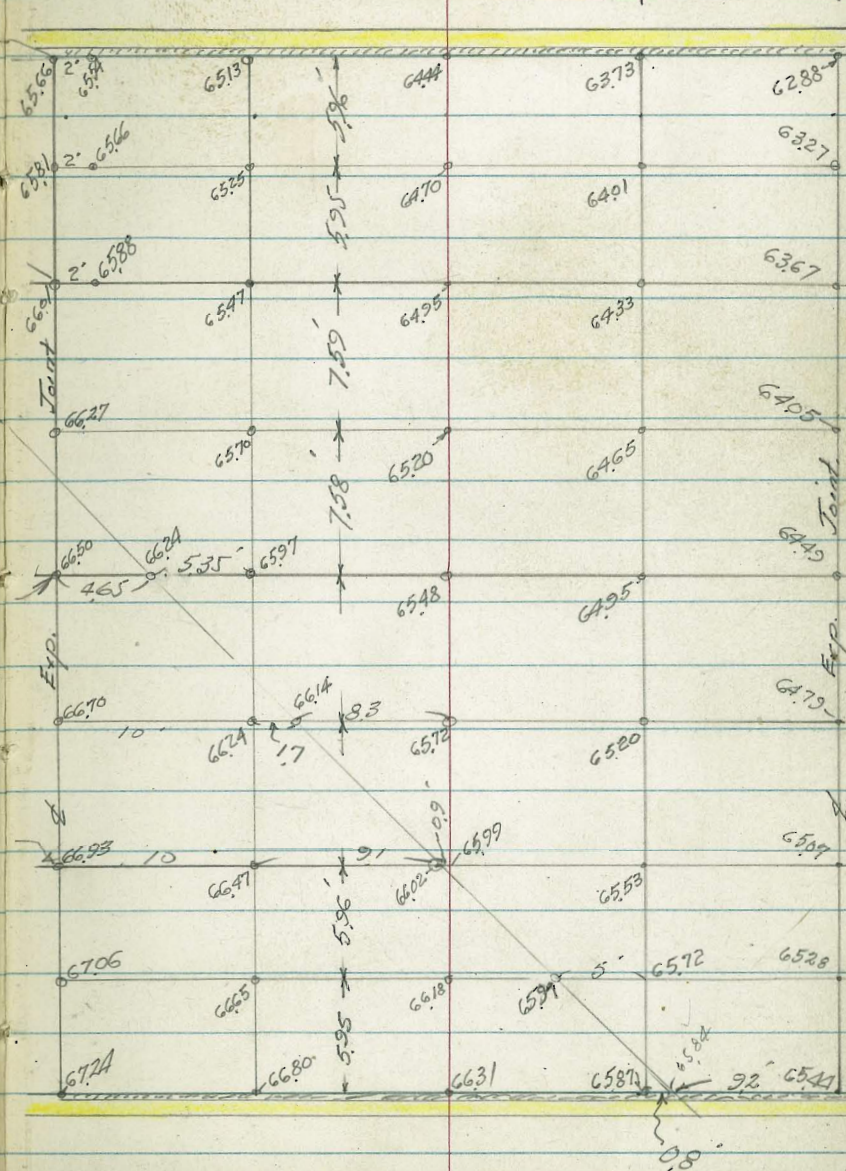 65.66 2' 65.54 65.13 64.44 63.73 62.88
5.96'
65.81 2' 65.66 65.25 64.70 64.01 63.27
5.95
66.01 2' 65.88 65.47 64.95 64.33 63.67
Joint 7.59'
66.27 65.70 65.20 64.65 64.05
7.58' Joint
66.50 4.65 66.24 5.35' 65.97 65.48 64.95 64.49
Exp. Exp.
66.70 10' 66.24 1.7 66.14 8.3 65.72 65.20 64.79
66.93 10 66.47 9.1 66.02 0.9' 65.99 65.53 65.07
5.96'
67.06 66.65 66.18 65.94 5' 65.72 65.28
5.95
67.24 66.80 66.31 65.87 65.84 9.2' 65.44
0.8'